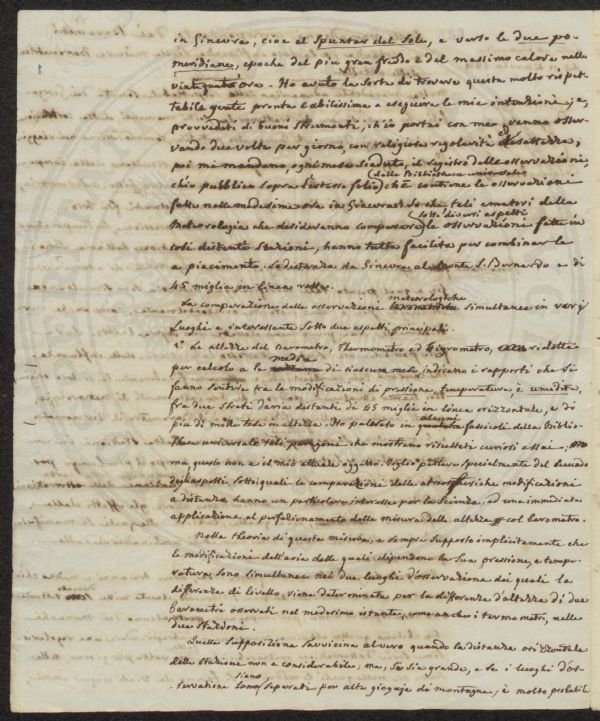 in Ginevra, cioe al spuntar del Sole, e verso le due po-
meridiane, epoche del piu gran freddo e del massimo calore nelle
vintequatro ore. Ho avuto la Sorte di trovare questa molto rispet-
tabile gente pronta e abilissima a eseguire le mie intenzione;
provveduti di buoni Strumenti, ch'io portai con me, vanno osser-
vando due volte per giorno, con religiosa regolarità e esattezza,
poi mi mandano, ogni mese scaduto, il registro delle osservazioni,
(della Bibliotheca universale
ch'io pubblico sopra l'istesso folio) che contiene le osservazioni
fatte nella medesima ora in Ginevra. So che tali amatori della
sotto diversi aspetti
Meteorologia che desideranno comparare le osservazioni fatte in
cosi distante Stazioni, hanno tutta facilita per combinar le
a piacimento. La distanza da Ginevra al monte S. Bernardo e di
45 miglia in linea retta.
meteorologiche
La comparazione delle osservazione simultanee in varj
Luoghi e interessante sotto due aspetti principali.
1° Le altezze del Barometro, Thermometro ed Hygrometro, ridotte
media
per calcolo a la di ciascun mese, indicano i rapporti che si
fanno sentire tra le modificazioni di pressione, temperatura, e umidita,
fra due Strati d'aria distanti di 45 miglie en linea orizzontale, e di
alcuni
piu di mille tese in altezza. Ho palesato in fascicoli della Biblio-
theca universale tali paragoni che mostrano risultati curiosi assai;
ma, questo non e il mio attuale oggetto. Voglio parlare specialmente del secondo
degli aspetti sotto i quali le comparazione delle atmospheriche modificazioni
a distanza, hanno un particolare interesse per la Scienza, ed una immediata
applicazione al perfezionamento della misura delle altezze col barometro.
Nella theoria di questa misura, e sempre supposto implicitamente che
le modificazioni dell'aria dalle quali dipendono la sua pressione, e tempe-
ratura sono simultanee nei due luoghi d'osservazione dei quali la
differenza di livello, viene determinata per la differenza d'altezza di due
barometri osservati nel medesimo istante, come anche i termometri, nelle
due stazioni.
Quella supposizione s'avvicina al vero quando la distanza orizzontale
delle stazione non e considerabile; ma, se sia grande, e se i luoghi d'os-
siano
-servatione separati per alte giogaje di montagne, è molto probabile